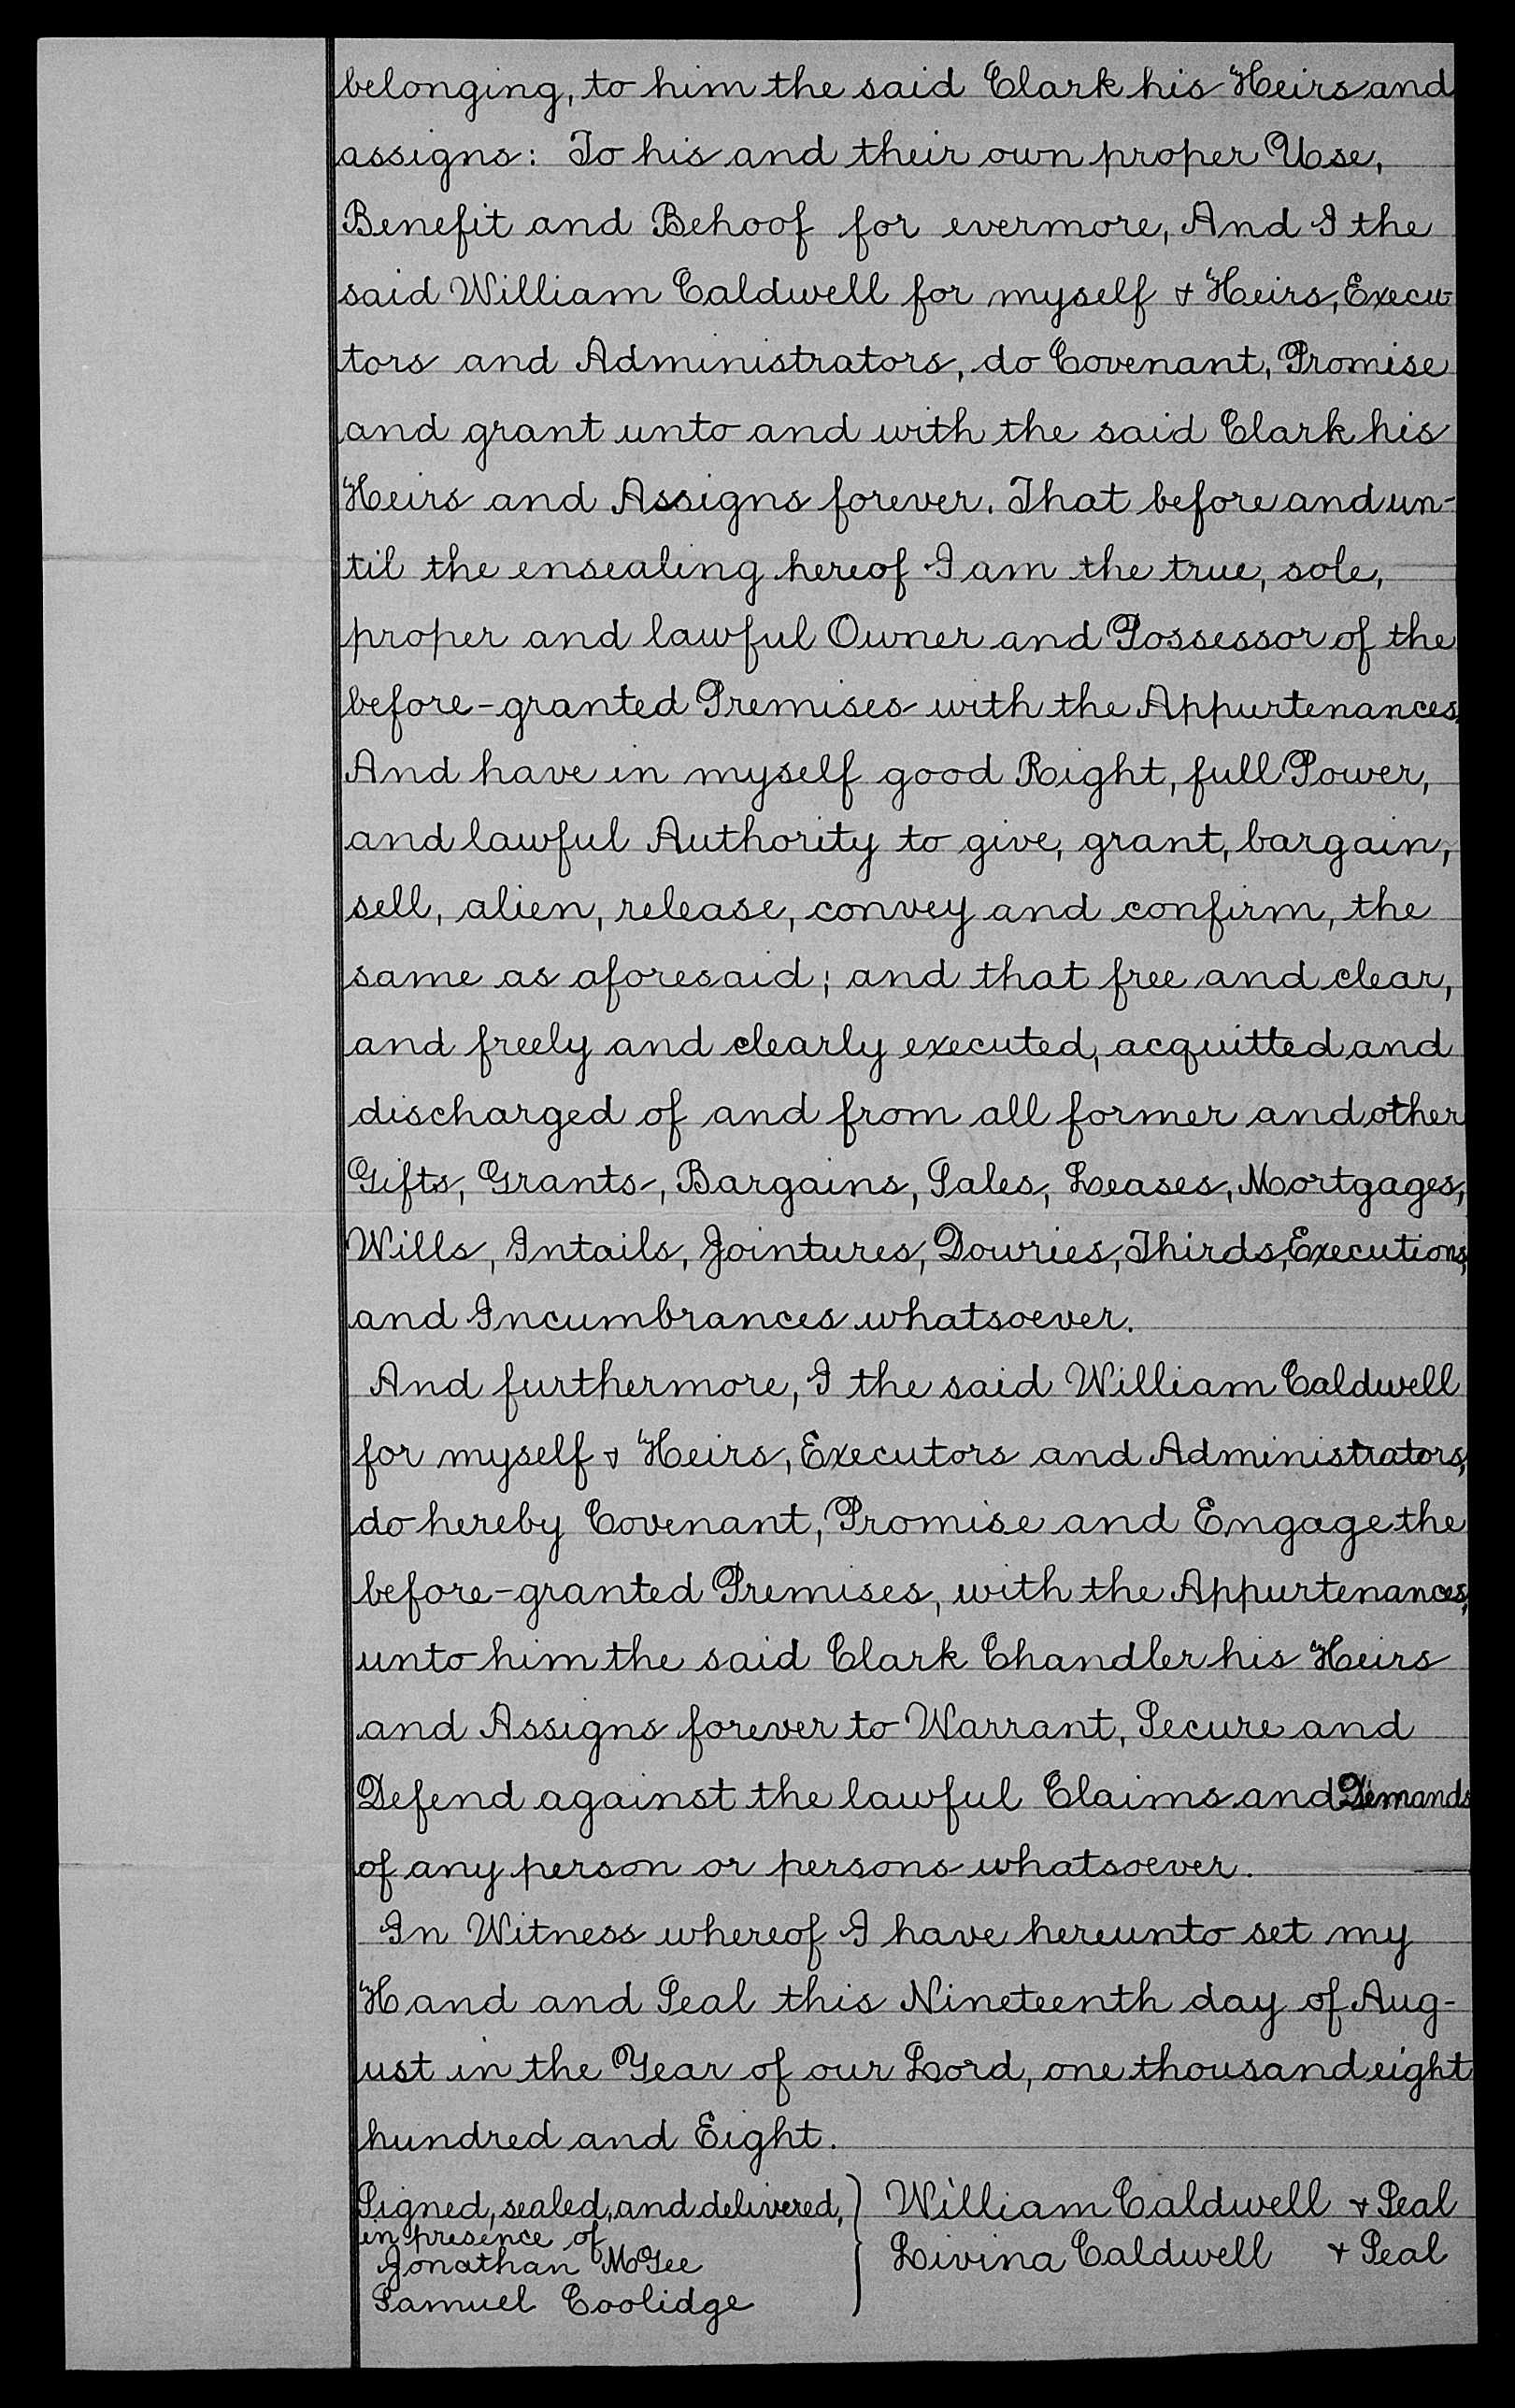 belonging, to him the said Clark his Heirs and
assigns: To his and their own proper Use,
Benefit and Behoof for evermore, And I the
said William Caldwell for myself & Heirs, Execu-
tors and Administrators, do Covenant, Promise
and grant unto and with the said Clark his
Heirs and Assigns forever. That before and un-
til the ensealing hereof I am the true, sole,
proper and lawful Owner and Possessor of the
before-granted Premises with the Appurtenances,
And have in myself good Right, full Power,
and lawful Authority to give, grant, bargain,
sell, alien, release, convey and confirm, the
same as aforesaid; and that free and clear,
and freely and clearly executed, acquitted and
discharged of and from all former and other
Gifts, Grants, Bargains, Sales, Leases, Mortgages,
Wills, Intails, Jointures, Dowries, Thirds, Executions,
and Incumbrances whatsoever.
And furthermore, I the said William Caldwell
for myself & Heirs, Executors and Administrators,
do hereby Covenant, Promise and Engage the
before-granted Premises, with the Appurtenances,
unto him the said Clark Chandler his Heirs
and Assigns forever to Warrant, Secure and
Defend against the lawful Claims and Demands
of any person or persons whatsoever.
In Witness whereof I have hereunto set my
Hand and Seal this Nineteenth day of Aug-
ust in the Year of our Lord, one thousand eight
hundred and Eight.
Signed, sealed, and delivered, } William Caldwell & Seal
in presence of
Jonathan McGee Livina Caldwell & Seal
Samuel Coolidge